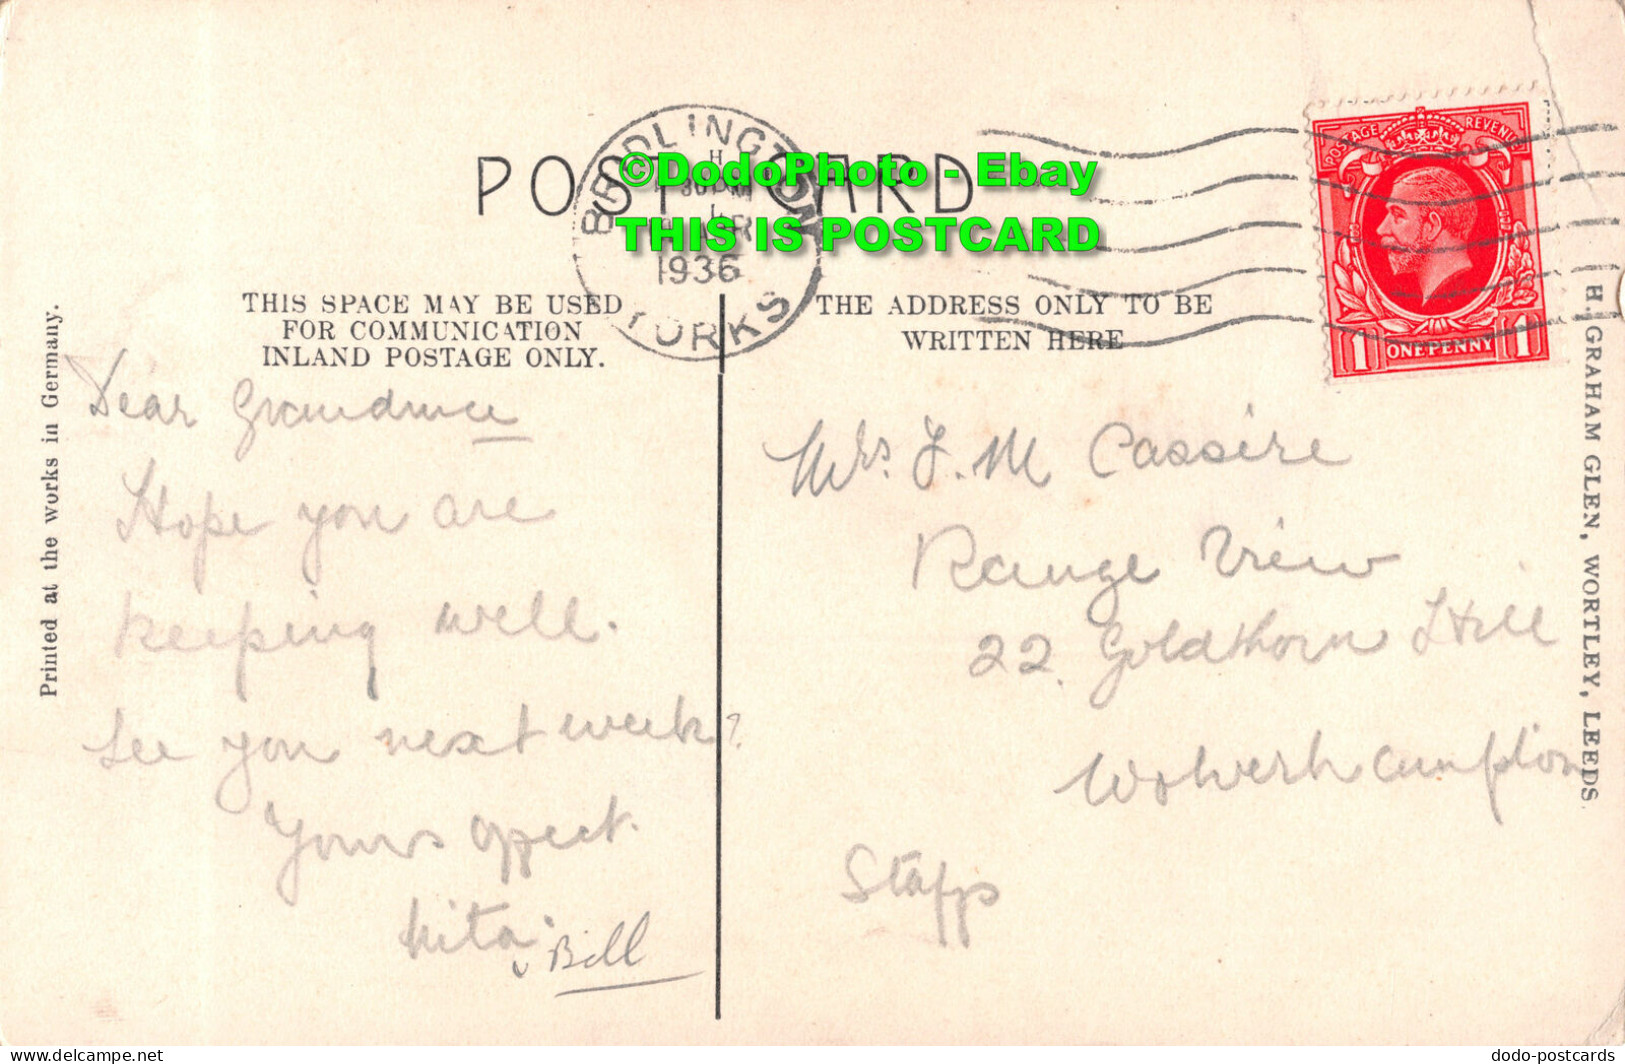 POST CARD
BRIDLINGTON
H
30 PM
4
1936
YORKS
©DodoPhoto - Ebay
THIS IS POSTCARD
POSTAGE REVENUE
1 ONE PENNY 1
THIS SPACE MAY BE USED
FOR COMMUNICATION
INLAND POSTAGE ONLY.
THE ADDRESS ONLY TO BE
WRITTEN HERE
Printed at the works in Germany.
Dear Grandma
Hope you are
keeping well.
See you next week?
Yours affect.
Nita.
Bill
Mrs. J. M Cassere
Range View
22. Goldthorn Hill
Wolverhampton
Staffs
H. GRAHAM GLEN, WORTLEY, LEEDS.
www.delcampe.net
dodo-postcards